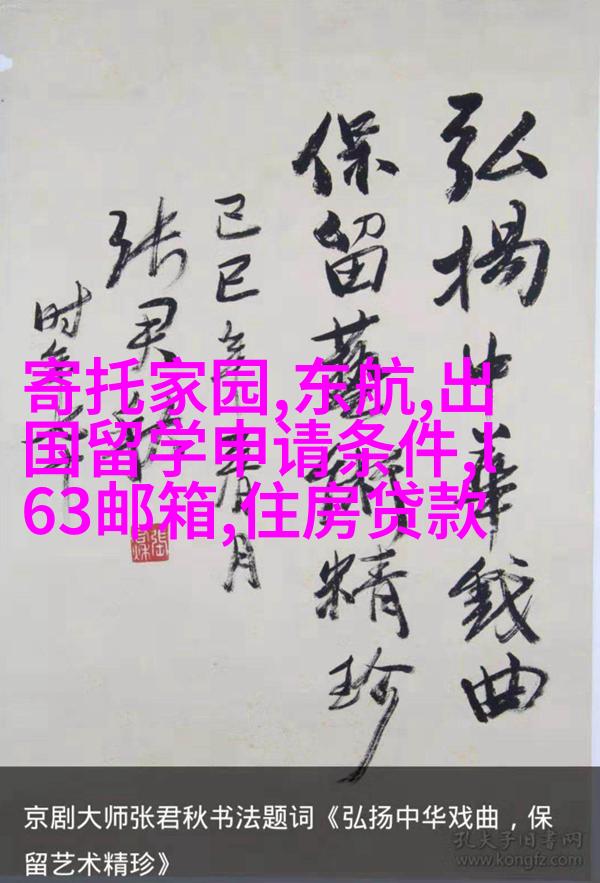 弘揚中華戏曲
保留藝術精珍
己巳年春月
张君秋
时年
寄托家园,东航,出
国留学申请条件,l
63邮箱,住房贷款
京剧大师张君秋书法题词《弘扬中华戏曲，保
留艺术精珍》
孔夫子旧书网
www.kongfz.com